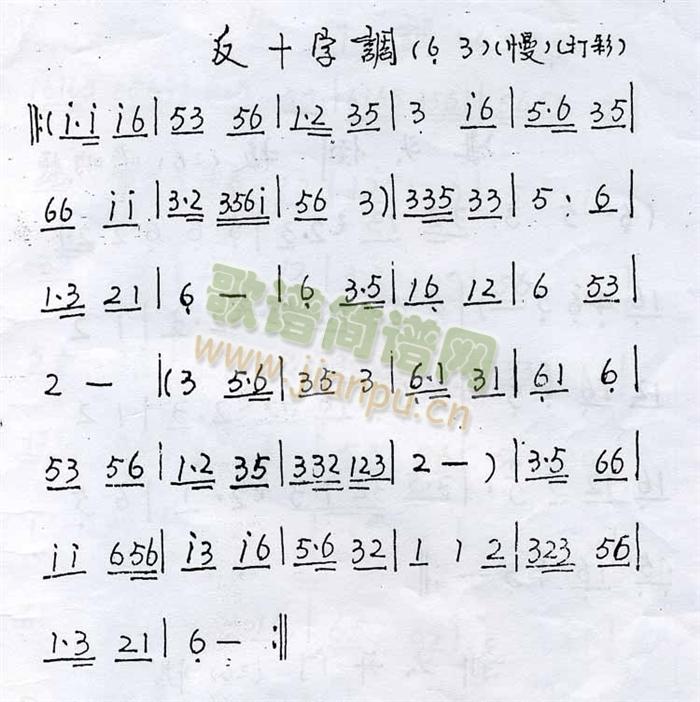 反十字調(6̣ 3)(慢)(打彩)
‖:(i·i i6|53 56|1·2 35|3 i6|5·6 35|
66 ii|3·2 356i|56 3)|335 33|5· 6|
1·3 21|6̣ —|6̣ 3·5|16̣ 12|6 53|
2 — |(3 5·6|35 3|6̣·1 31|6̣1 6̣|
53 56|1·2 35|332 123|2 —)|3·5 66|
ii 656|i3 i6|5·6 32|1 1 2|323 56|
1·3 21|6̣ — :‖
歌谱简谱网
www.jianpu.cn